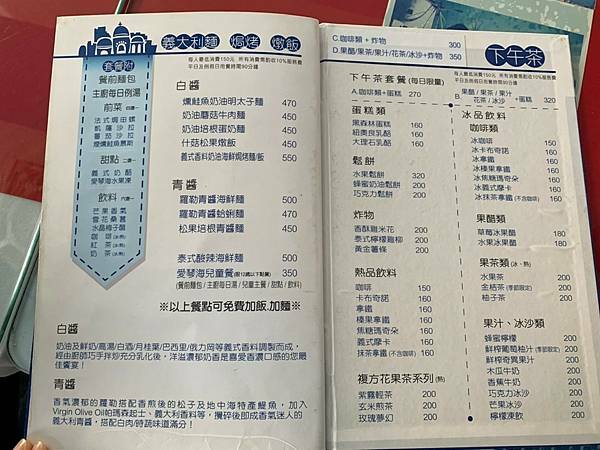 義大利麵 焗烤 燉飯
每人最低消費150元 所有消費需酌收10%服務費
平日及例假日用餐時間90分鐘
套餐附
餐前麵包
主廚每日例湯
前菜
法式焗田螺
凱薩沙拉
蕃茄沙拉
煙燻鮭魚慕斯
甜點
義式奶酪
愛琴海水果凍
飲料
芒果香氣
雪花桑葚
水晶梅子醋
咖啡
紅茶
奶茶
白醬
燻鮭魚奶油明太子麵 470
奶油蘑菇牛肉麵 450
奶油培根蛋奶麵 450
什菇松果燉飯 450
義式香料奶油海鮮焗烤麵/飯 550
青醬
羅勒青醬海鮮麵 500
羅勒青醬蛤蜊麵 470
松果培根青醬麵 450
泰式酸辣海鮮麵 500
愛琴海兒童餐(限12歲以下點餐) 350
(餐前麵包 / 主廚每日湯 / 兒童主餐 / 甜點 / 飲料)
※以上餐點可免費加飯.加麵※
白醬
奶油及鮮奶/高湯/白酒/月桂葉/巴西里/俄力岡等義式香料調製而成,
經由廚師巧手拌炒充分乳化後,洋溢濃郁奶香是喜愛香濃口感的您最
佳饗宴!
青醬
香氣濃郁的羅勒搭配香煎後的松子及地中海特產鯷魚,加入
Virgin Olive Oil帕瑪森起士、義大利香料等,攪碎後即成香氣迷人的
義式青醬,搭配白肉/時蔬味道滿分!
C.咖啡類 + 炸物 300
D.果醋/果茶/果汁/花茶/冰沙+炸物 350
下午茶
每人最低消費150元 所有消費需酌收10%服務費
平日及例假日用餐時間90分鐘
下午茶套餐(每日限量)
A.咖啡類+蛋糕 270
B.果醋 / 果茶 / 果汁
花茶 / 冰沙 +蛋糕 320
蛋糕類
黑森林蛋糕 160
紐奧良乳酪 160
大理石乳酪 160
鬆餅
水果鬆餅 320
蜂蜜奶油鬆餅 200
巧克力鬆餅 200
炸物
香酥雞米花 200
泰式檸檬雞柳 200
黃金薯條 200
熱品飲料
咖啡 150
卡布奇諾 160
拿鐵 160
榛果拿鐵 160
焦糖瑪奇朵 160
義式摩卡 160
抹茶拿鐵(不含咖啡) 160
複方花果茶系列(熱)
紫霧輕茶 200
玄米煎茶 200
玫瑰夢幻 200
冰品飲料
咖啡類
冰咖啡 150
冰卡布奇諾 160
冰拿鐵 160
冰榛果拿鐵 160
冰焦糖瑪奇朵 160
冰義式摩卡 160
冰抹茶拿鐵(不含咖啡) 160
果醋類
草莓冰果醋 160
水果冰果醋 180
果茶類(冰、熱)
水果茶 200
金桔茶(季節限定) 200
柚子茶 200
果汁、冰沙類
蜂蜜檸檬 200
鮮榨葡萄柚汁(季節限定) 200
鮮榨奇異果汁 200
木瓜牛奶 200
香蕉牛奶 200
巧克力冰沙 200
芒果冰沙 200
檸檬凍飲 200